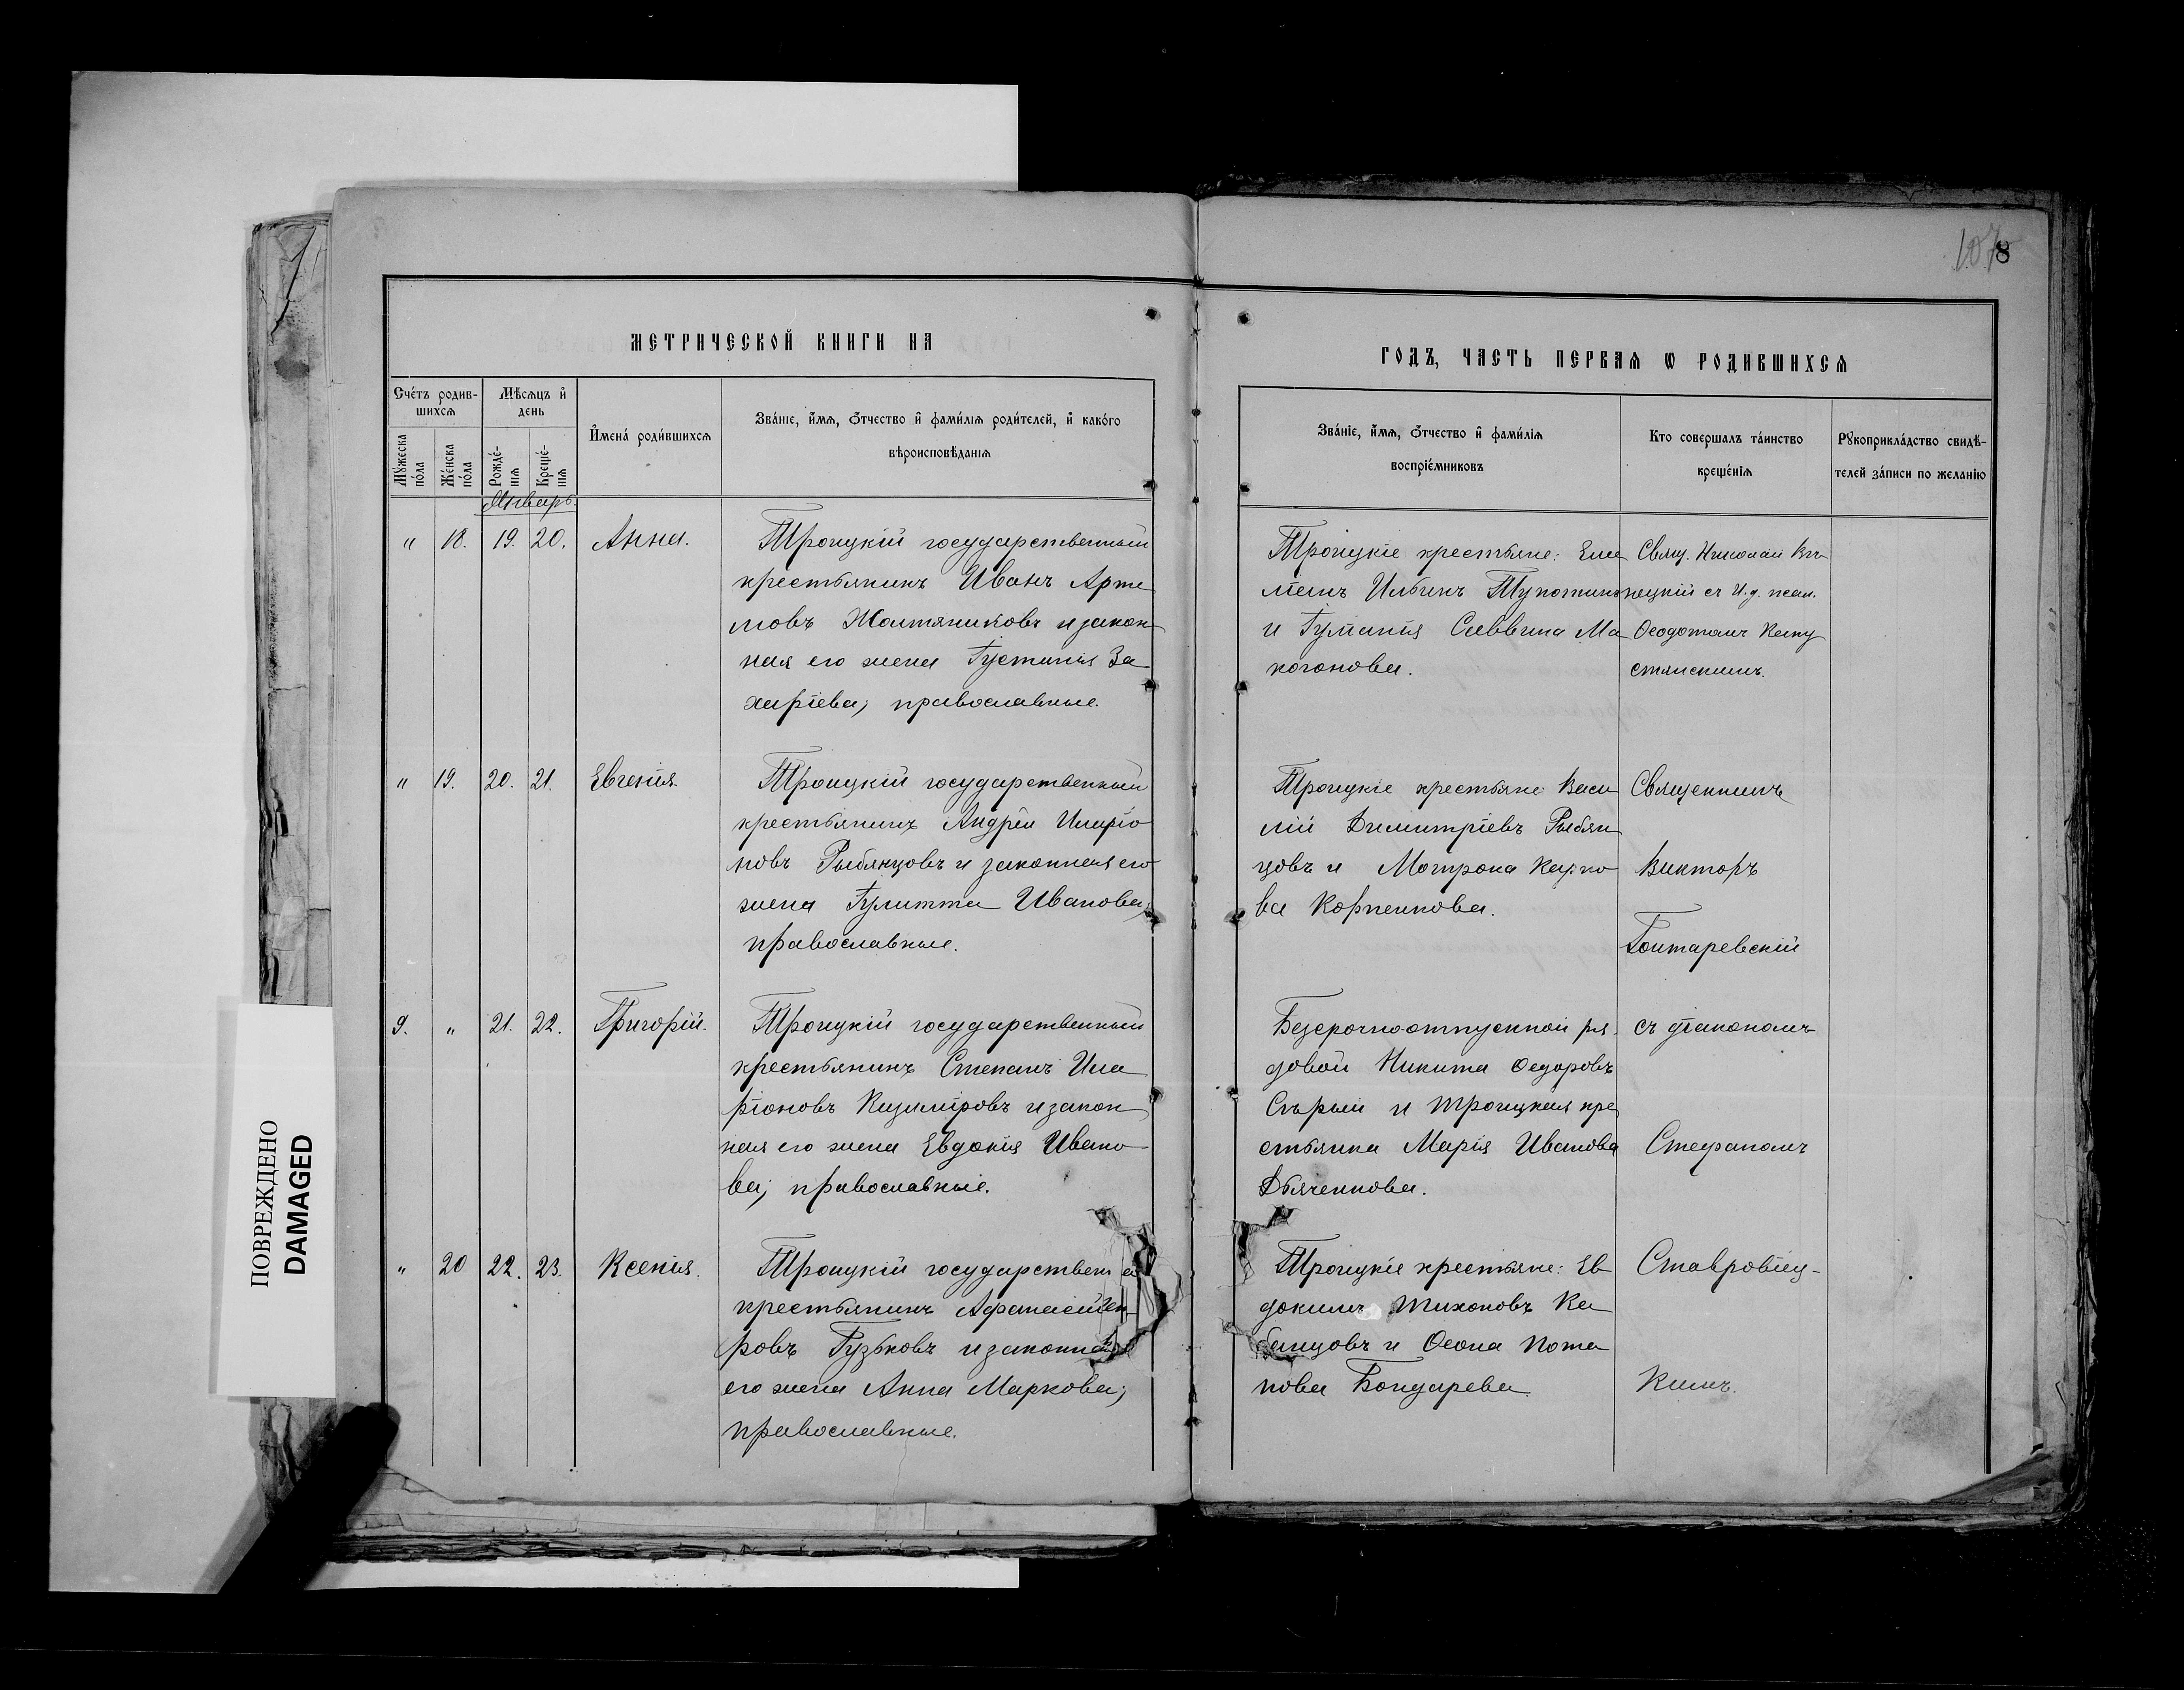 107
8
МЕТРИЧЕСКОЙ КНИГИ НА
ГОДЪ, ЧАСТЬ ПЕРВАЯ Ѡ РОДИВШИХСЯ
Счетъ родив-
шихся
Мужеска пола
Женска пола
Мѣсяцъ и
день
Рожде-
нія
Креще-
нія
Имена родившихся
Званіе, имя, отчество и фамилія родителей, и какого
вѣроисповѣданія
Званіе, имя, отчество и фамилія
воспріемниковъ
Кто совершалъ таинство
крещенія
Рукоприкладство свидѣ-
телей записи по желанію
Январь.
" 18. 19. 20. Анна.
Троицкій государственный
крестьянинъ Иванъ Арте
мовъ Жолтяниковъ и закон
ная его жена Іустинія За
харіева; православные.
Троицкіе крестьяне: Еме
ліанъ Ильинъ
и Іуліанія Саввина Ма
когонова.
Свящ. Николай
съ И. д. псал.
Ѳеодотомъ Капу
стянскимъ.
" 19. 20. 21. Евгенія.
Троицкій государственный
крестьянинъ Андрей Иларіо
новъ Рыбянцовъ и законная его
жена Іулитта Иванова;
православные.
Троицкіе крестьяне Васи
лій Димитріевъ Рыбян
цовъ и Мотрона Карпо
ва Корпенкова.
Священникъ
Викторъ
Гонтаревскій
9. " 21. 22. Григорій.
Троицкій государственный
крестьянинъ Степанъ Ила
ріоновъ Казиміровъ и закон
ная его жена Евдокія Ивано
ва; православные.
Безсрочно-отпускной ря
довой Никита Ѳедоровъ
Сѣрый и троицкая кре
стьянка Марія Иванова
Дьяченкова.
съ діакономъ
Стефаномъ
" 20 22. 23. Ксенія.
Троицкій государствен
крестьянинъ Афанасій
ровъ Гузьковъ и законная
его жена Анна Маркова;
православные.
Троицкіе крестьяне: Ев
докимъ Тихоновъ Ка
банцовъ и Ѳеона Пота
пова Бондарева.
Ставровіец-
кимъ.
ПОВРЕЖДЕНО
DAMAGED